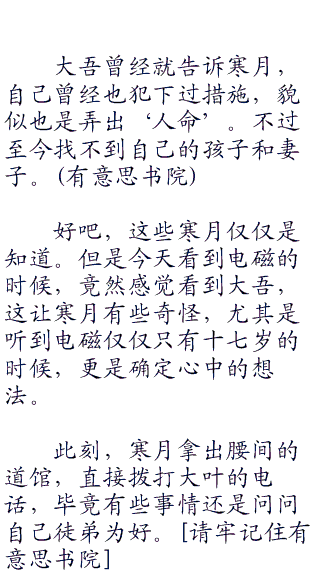 大吾曾经就告诉寒月，
自己曾经也犯下过措施，貌
似也是弄出‘人命’。不过
至今找不到自己的孩子和妻
子。(有意思书院)
好吧，这些寒月仅仅是
知道。但是今天看到电磁的
时候，竟然感觉看到大吾，
这让寒月有些奇怪，尤其是
听到电磁仅仅只有十七岁的
时候，更是确定心中的想
法。
此刻，寒月拿出腰间的
道馆，直接拨打大叶的电
话，毕竟有些事情还是问问
自己徒弟为好。[请牢记住有
意思书院]